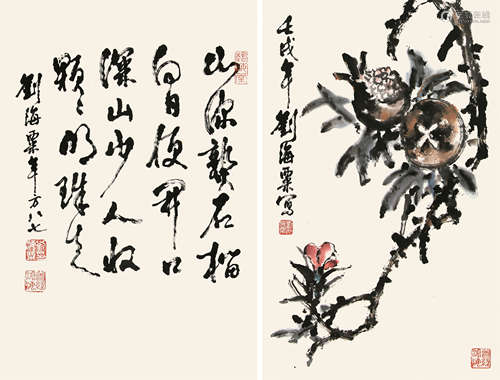 山深熟石榴
向日便开口
深山少人收
颗颗明珠走
劉海粟年方八七
壬戌年劉海粟寫